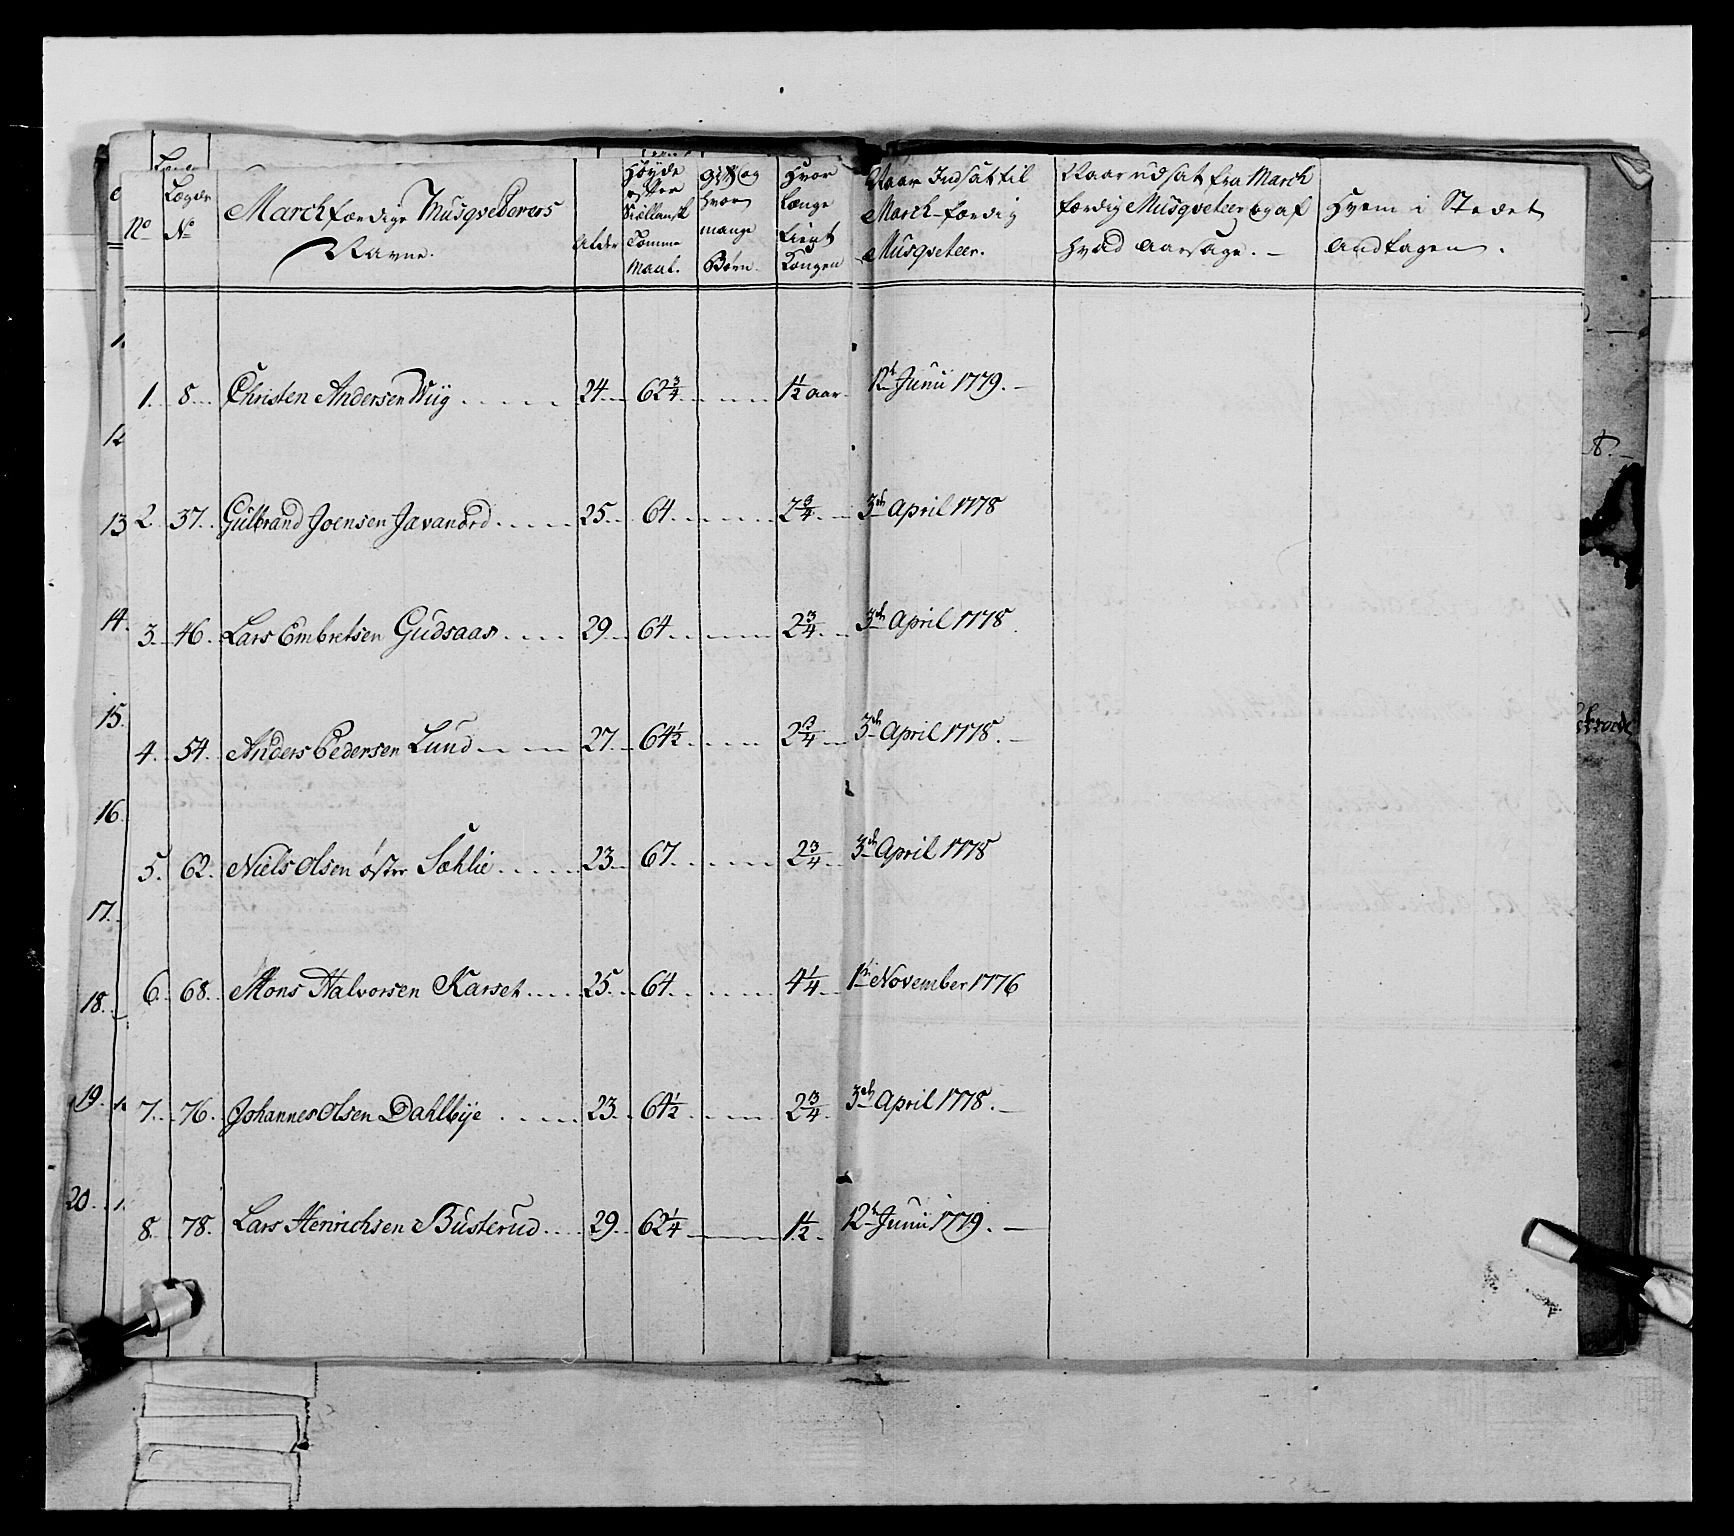 No
Lægds No
Marchfærdige Musqveterers Navne.
Alder
Høyde efter Siællansk Tomme Maal.
gift og hvor mange Børn.
Hvor Længe tient Kongen
Naar Indsat til March-færdig Musqveteer.
Naar udsat fra March færdig Musqveteer og af hvad Aarsage. –
Hvem i Stedet Andtagen.
1. 8. Christen Andersen Wiig 24. 62 3/4 1 1/2 aar. 12te Junii 1779. –
2. 37. Gulbrand Joensen Javanord 25. 64. 2 3/4 3de April 1778
3. 46. Lars Embretsen Gudsaas 29. 64. 2 3/4 3de April 1778.
4. 54. Anders Pedersen Lund 27. 64 1/2 2 3/4 3de April 1778. –
5. 62. Niels Olsen øster Sæhlie 23. 67. 2 3/4 3de April 1778
6. 68. Mons Halvorsen Karset 25. 64. 4 1/4 1te November 1776
7. 76. Johannes Olsen Dahlbye 23. 64 1/2 2 3/4 3de April 1778. –
8. 78. Lars Henrichsen Busterud 29. 62 1/4 1 1/2 12te Junii 1779. –
13
14.
15.
16.
17.
18.
19.
20.